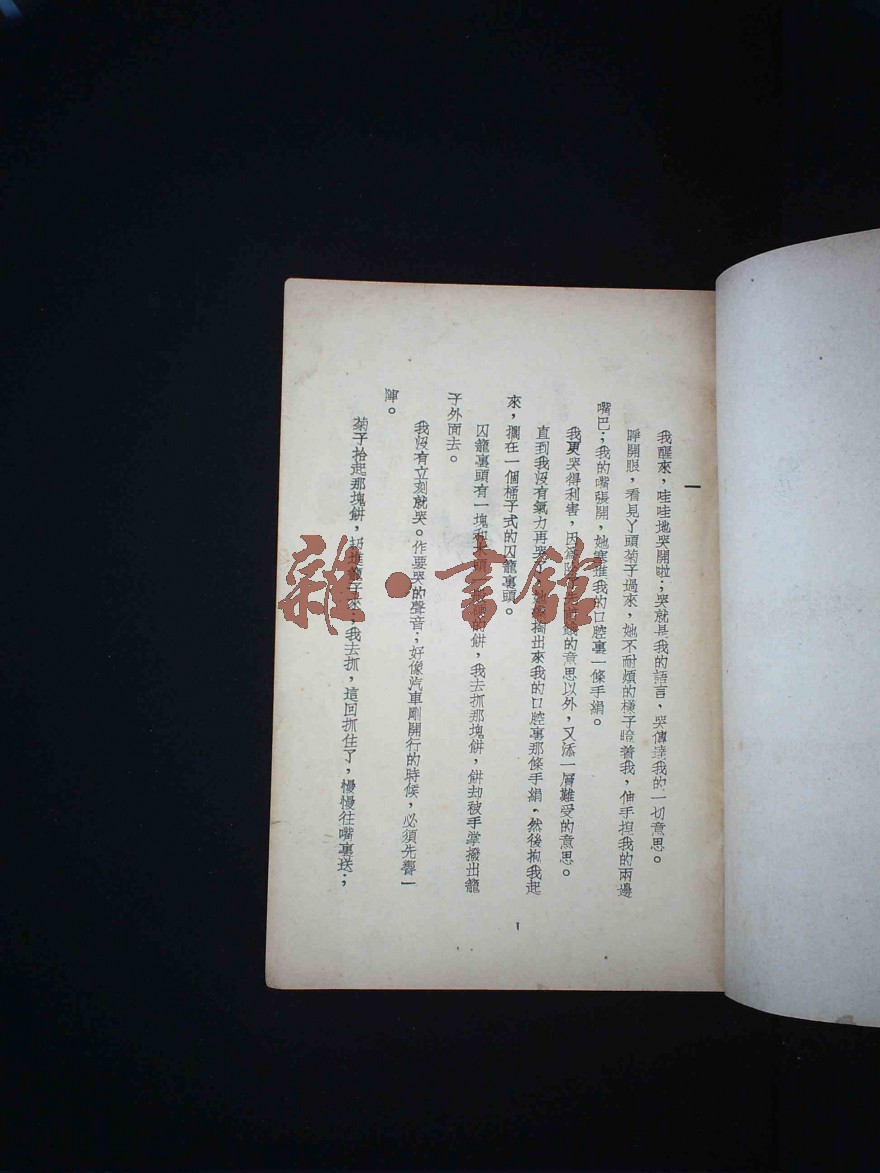 一
我醒來，哇哇地哭開啦；哭就是我的語言，哭傳達我的一切意思。
睜開眼，看見丫頭菊子過來，她不耐煩的樣子瞪着我，伸手揑我的兩邊
嘴巴；我的嘴張開，她塞進我的口腔裏一條手絹。
我更哭得利害，因爲除了的意思以外，又添一層難受的意思。
直到我沒有氣力再哭了，她纔掏出來我的口腔裏那條手絹，然後抱我起
來，擱在一個桶子式的囚籠裏頭。
囚籠裏頭有一塊和木頭一般硬的餅，我去抓那塊餅，餅却被手掌撥出籠
子外面去。
我沒有立刻就哭。作要哭的聲音；好像汽車剛開行的時候，必須先響一
陣。
菊子拾起那塊餅，扔進籠子來；我去抓，這回抓住了，慢慢往嘴裏送；
1
雜·書館